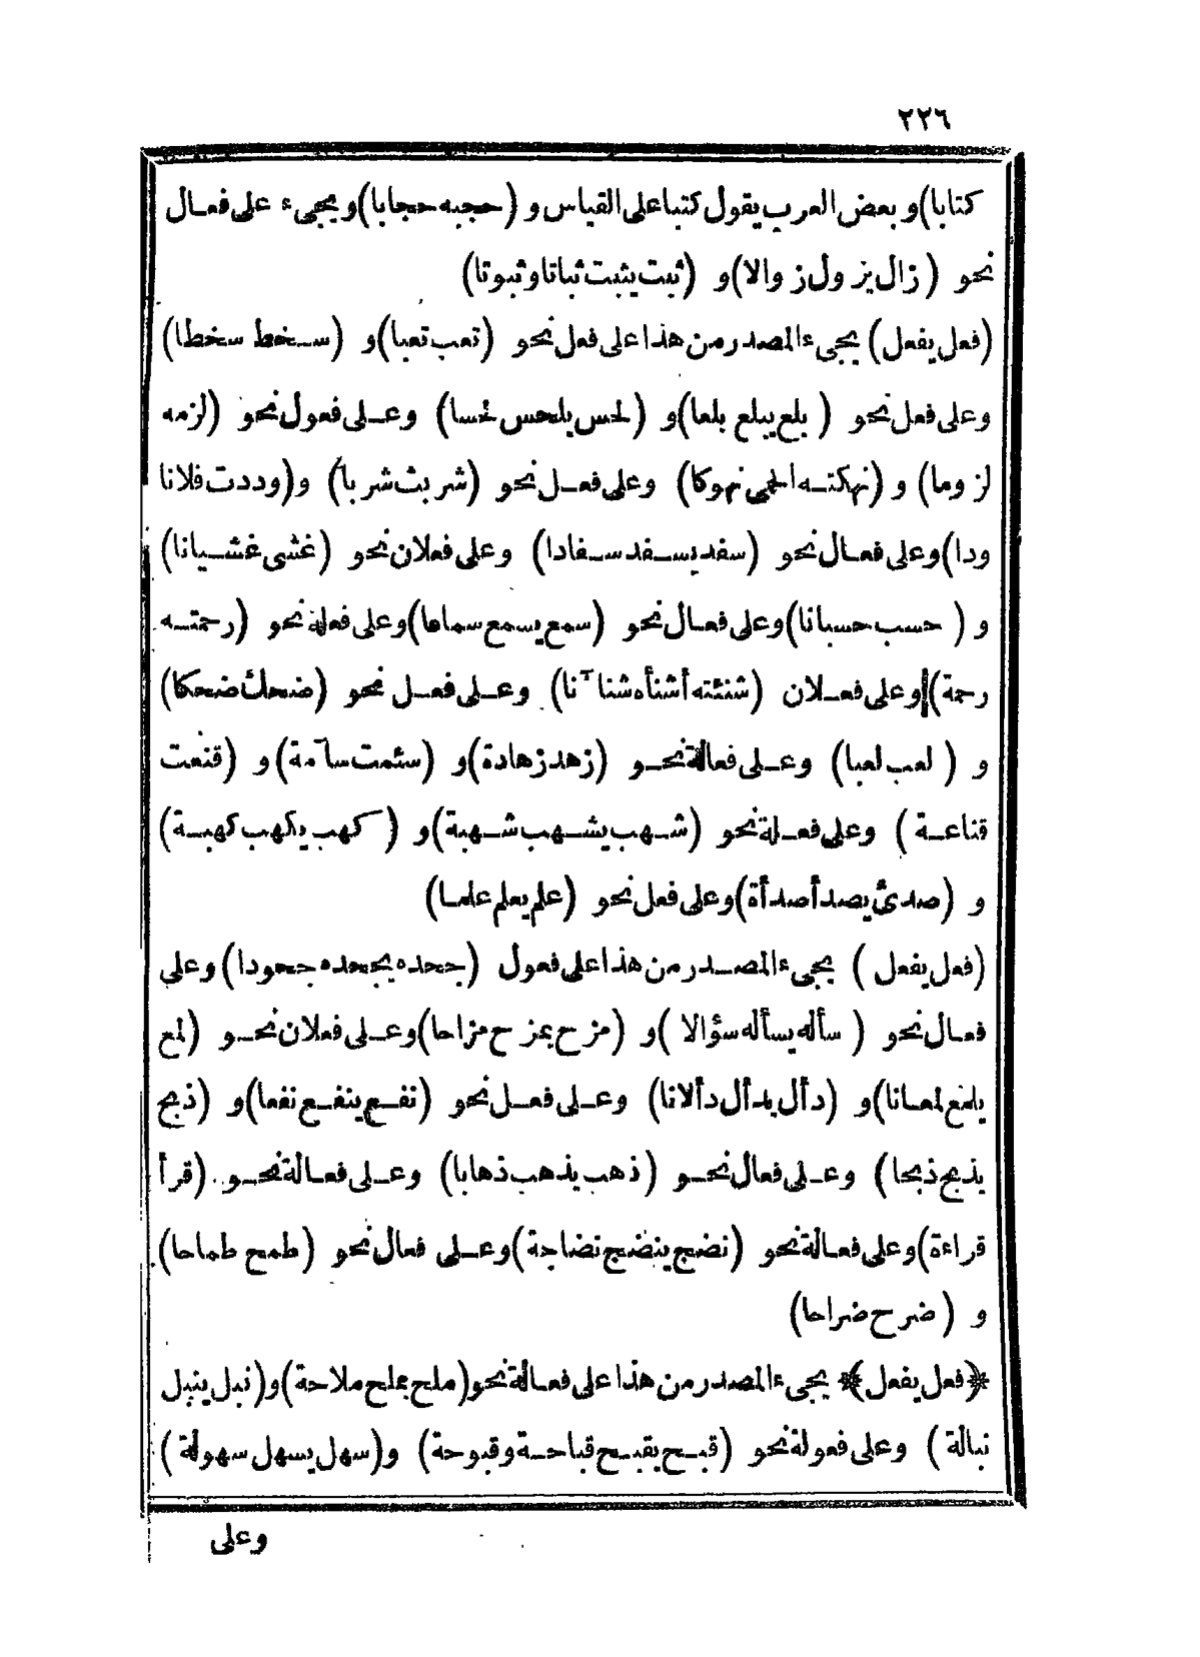 ٢٢٦
كتابا) وبعض العرب يقول كتبا على القياس و (حجبه حجابا) ويجىء على فعال
نحو (زال يزول زوالا) و (ثبت يثبت ثباتا وثبوتا)
(فعل يفعل) يجىء المصدر من هذا على فعل نحو (تعب تعبا) و (سخط سخطا)
وعلى فعل نحو (بلع يبلع بلعا) و (لحس يلحس لحسا) وعلى فعول نحو (لزمه
لزوما) و (نهكته الحمى نهوكا) وعلى فعل نحو (شربت شربا) و (وددت فلانا
ودا) وعلى فعال نحو (سفد يسفد سفادا) وعلى فعلان نحو (غشى غشيانا)
و (حسب حسبانا) وعلى فعال نحو (سمع يسمع سماعا) وعلى فعلة نحو (رحمته
رحمة) وعلى فعلان (شنئته أشنأه شنآنا) وعلى فعل نحو (ضحك ضحكا)
و (لعب لعبا) وعلى فعالة نحو (زهد زهادة) و (سئمت سآمة) و (قنعت
قناعة) وعلى فعلة نحو (شهب يشهب شهبة) و (كهب يكهب كهبة)
و (صدئ يصدأ صدأة) وعلى فعل نحو (علم يعلم علما)
(فعل يفعل) يجىء المصدر من هذا على فعول (جحده يجحده جحودا) وعلى
فعال نحو (سأله يسأله سؤالا) و (مزح يمزح مزاحا) وعلى فعلان نحو (لمع
يلمع لمعانا) و (دأل يدأل دألانا) وعلى فعل نحو (نفع ينفع نفعا) و (ذبح
يذبح ذبحا) وعلى فعال نحو (ذهب يذهب ذهابا) وعلى فعالة نحو (قرأ
قراءة) وعلى فعالة نحو (نضج ينضج نضاجة) وعلى فعال نحو (طمح طماحا)
و (ضرح ضراحا)
﴿فعل يفعل﴾ يجىء المصدر من هذا على فعالة نحو (ملح يملح ملاحة) و (نبل ينبل
نبالة) وعلى فعولة نحو (قبح يقبح قباحة وقبوحة) و (سهل يسهل سهولة)
وعلى